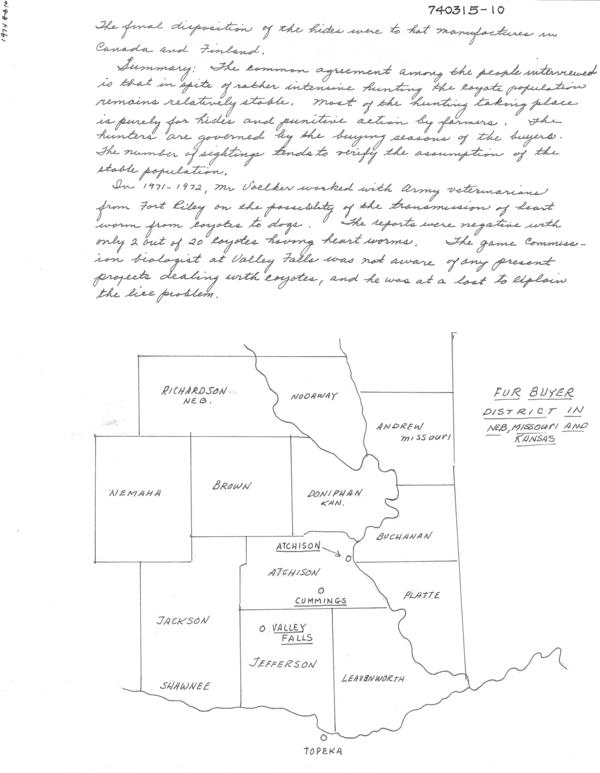 740315-10
The final disposition of the hides were to hat manufactures in
Canada and Finland.
Summary: The common agreement among the people interviewed
is that in spite of rather intensive hunting the coyote population
remains relatively stable. Most of the hunting taking place
is purely for hides and punitive action by farmers. The
hunters are governed by the buying seasons of the buyers.
The number of sightings tends to verify the assumption of the
stable population.
In 1971-1972, Mr Voelker worked with Army veterinarians
from Fort Riley on the possiblity of the transmission of heart
worm from coyotes to dogs. The reports were negative with
only 2 out of 20 coyotes having heart worms. The game Commiss-
ion biologist at Valley Falls was not aware of any present
projects dealing with coyotes, and he was at a lost to explain
the lice problem.
RICHARDSON
NEB.
NODAWAY
ANDREW
MISSOURI
FUR BUYER
DISTRICT IN
NEB, MISSOURI AND
KANSAS
NEMAHA
BROWN
DONIPHAN
KAN.
BUCHANAN
ATCHISON
ATCHISON
CUMMINGS
PLATTE
JACKSON
VALLEY
FALLS
JEFFERSON
LEAVENWORTH
SHAWNEE
TOPEKA